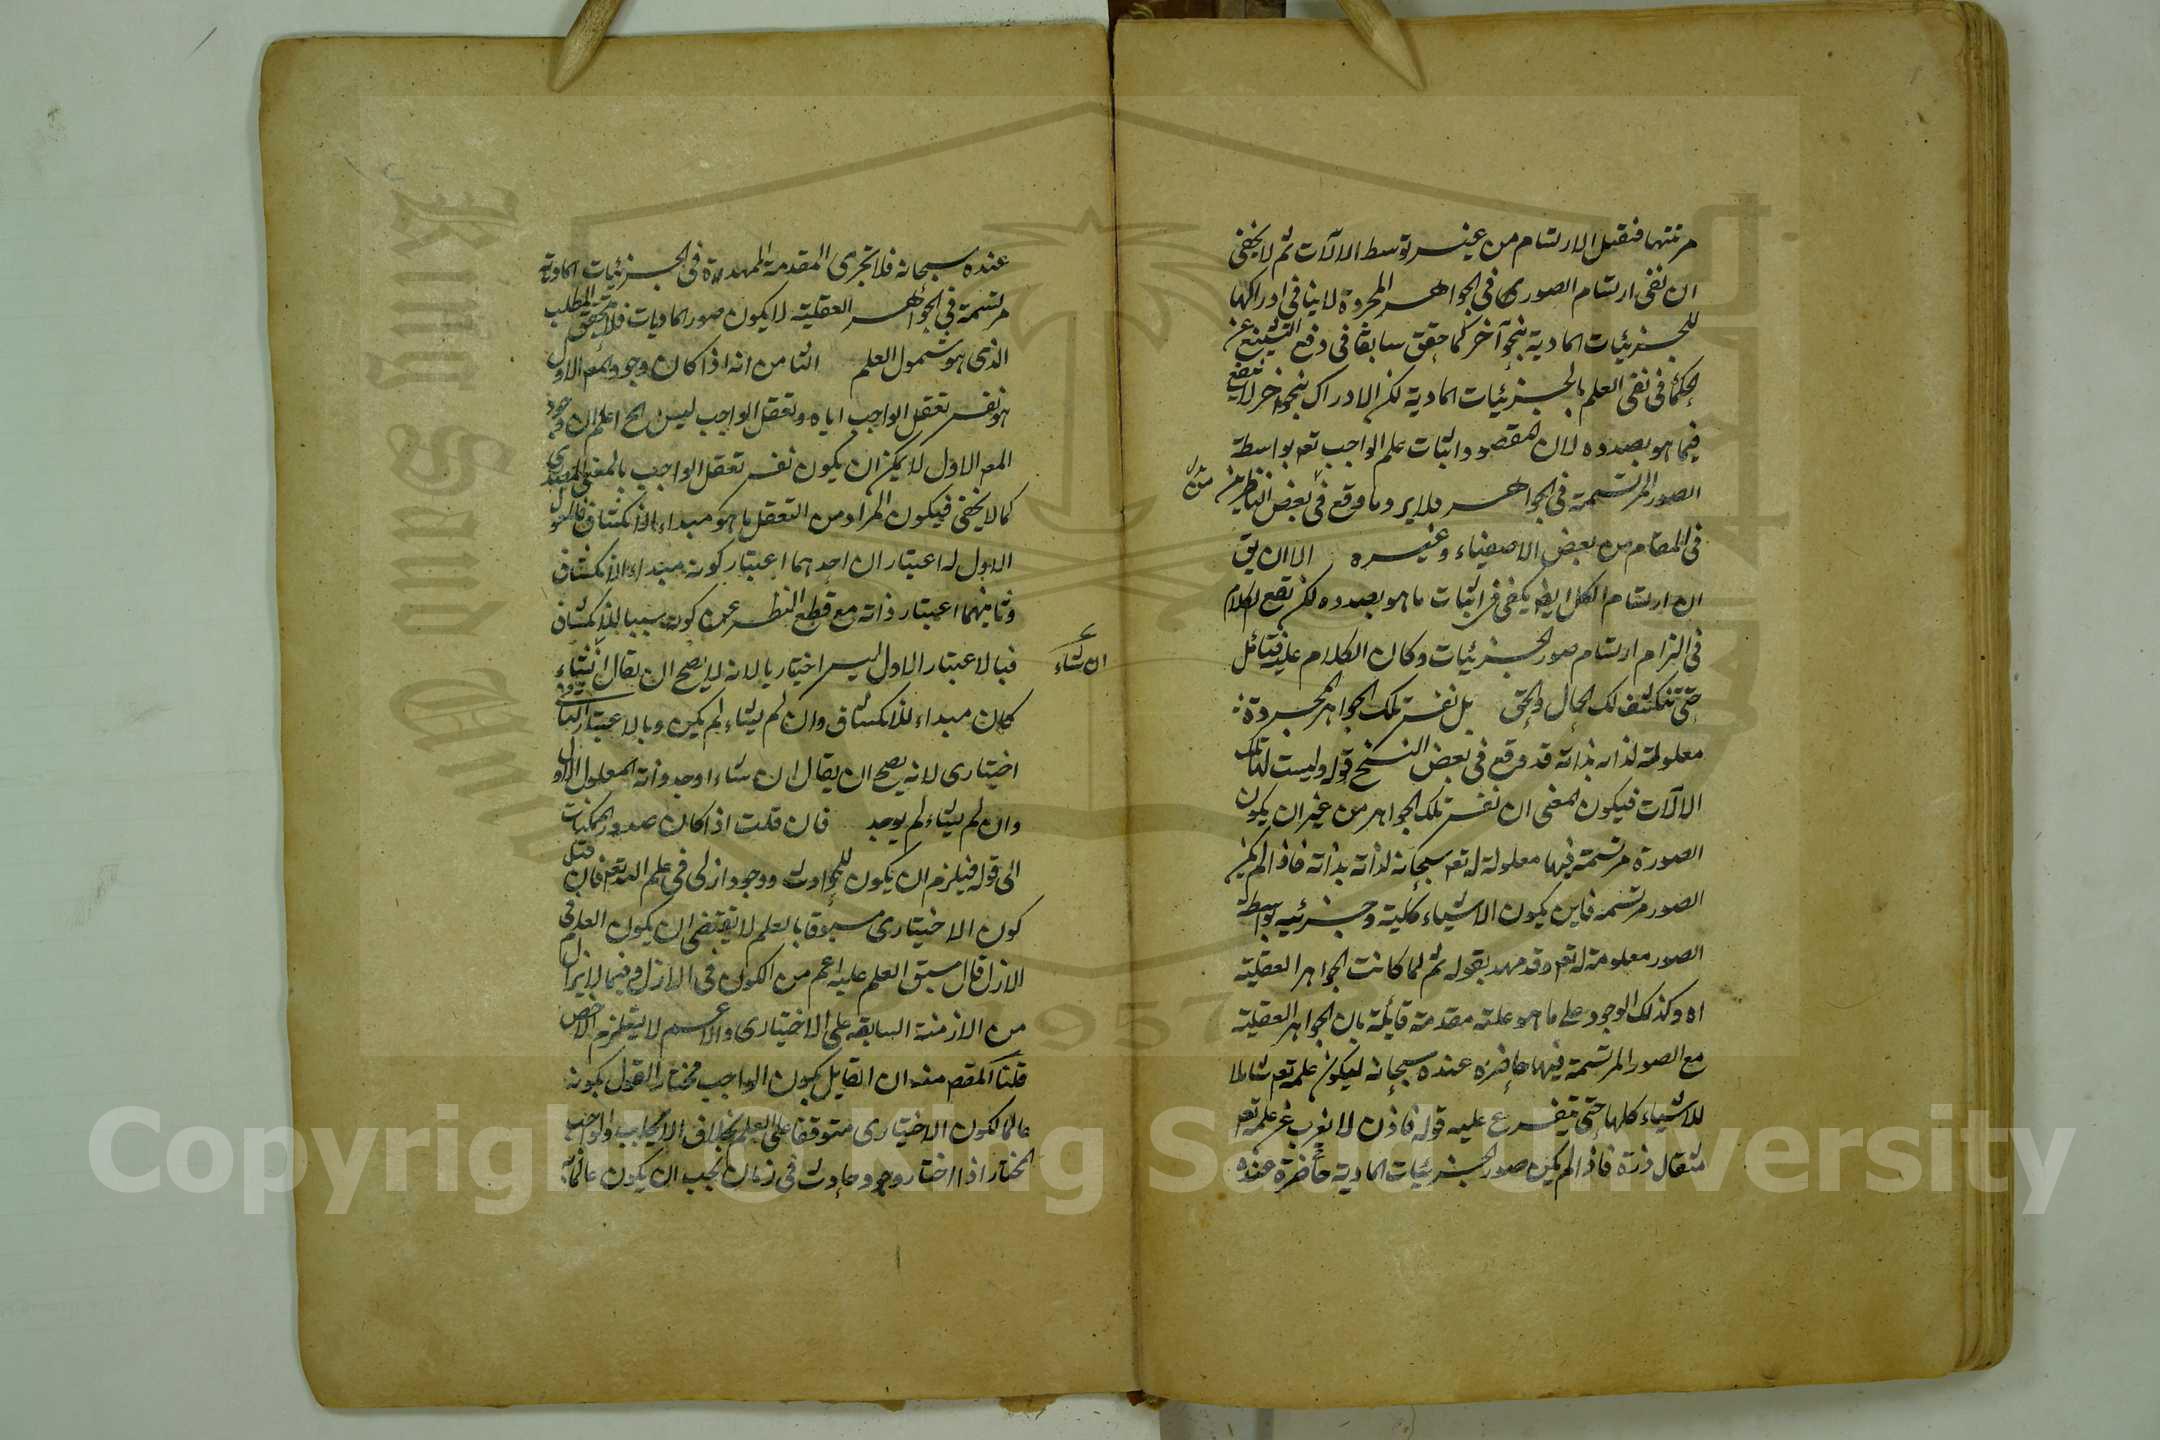 مرتبتها فتقبل الارتسام من غير توسط الالات ثم لا يخفى
ان نفى ارتسام الصورى فى الجواهر المجردة لا ينافى ادراكها
للجزئيات المادية بنحو آخر كما حقق سابقا فى دفع التشنيع عن
الحكما فى نفى العلم بالجزئيات المادية لكن الادراك بنحو اخر لا ينفع
فيما هو بصدده لان المقصود اثبات علم الواجب تع بواسطة
الصور المرتسمة فى الجواهر فلا يرد ما وقع فى بعض الناظرين
فى المقام من بعض الاصفياء وغيره الا ان يق
ان ارتسام الكل ايض يكفى فى اثبات ما هو بصدده لكن تقع الكلام
فى التزام ارتسام صور الجزئيات وكان الكلام عليه فتامل
حتى تنكشف لك الحال والحق بل نفس تلك الجواهر المجردة
معلولة لذاته بذاته قد وقع فى بعض النسخ قوله وليست لتلك
الالآت فيكون المعنى ان نفس تلك الجواهر من غير ان يكون
الصورة مرتسمة فيها معلولة له تع سبحانه لذاته بذاته فاذا لم يكن
الصور مرتسمة فاين يكون الاشياء كلية وجزئيه بواسطة
الصور معلومة له تع وقد مهد بقوله ثم لما كانت الجواهر العقلية
اه وكذلك الوجود على ما هو عليه مقدمة قائلة بان الجواهر العقلية
مع الصور المرتسمة فيها حاضرة عنده سبحانه ليكون علمه تع شاملا
للاشياء كلها حتى يتفرع عليه قوله فاذن لا يعزب عن علمه تع
مثقال ذرة فاذا لم يكن صور الجزئيات المادية حاضرة عنده
عنده سبحانه فلا تجرى المقدمة الممهدة فى الجزئيات المادية
مرتسمة فى الجواهر العقلية لا يكون صور الماديات فلا يتحقق المطلب
الذى هو شمول العلم الثامن انه اذا كان وجود المع الاول
هو نفس تعقل الواجب اياه وتعقل الواجب ليس الخ اعلم ان وجود
المع الاول لا يمكن ان يكون نفس تعقل الواجب بالمعنى المصدرى
كما لا يخفى فيكون المراد من التعقل ما هو مبداء الانكشاف فالمعلول
الاول له اعتباران احدهما اعتبار كونه مبداء الانكشاف
وثانيهما اعتبار ذاته مع قطع النظر عن كونه سببا للانكشاف
فبالاعتبار الاول ليس اختياريا لانه لا يصح ان يقال ان شاء
ان شاء
كان مبداء للانكشاف وان لم يشاء لم يكن وبالاعتبار الثانى
اختيارى لانه يصح ان يقال ان شاء اوجد ذات المعلول الاول
وان لم يشاء لم يوجد فان قلت اذا كان صدور الممكنات
الى قوله فيلزم ان يكون للحوادث وجود ازلى فى علم الله تع فان قيل
كون الاختيارى مسبوقا بالعلم لا يقتضى ان يكون العلم فى
الازل قال سبق العلم عليه اعم من الكون فى الازل وفيما لا يزال
من الازمنة السابقة على الاختيارى والاعم لا يستلزم الاخص
قلنا المقصم منه ان القايل بكون الواجب مختارا القول بكونه
عالما لكون الاختيارى متوقفا على العلم بخلاف الايجاب والواجب
المختار اذا اختار وجود حادث فى زمان يجب ان يكون عالما به
Copyright © King Saud University
King Saud University
1957